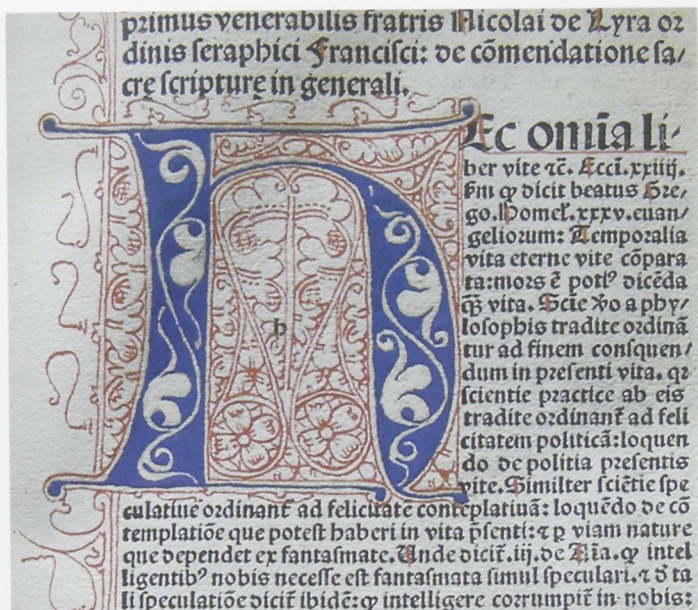 primus venerabilis fratris Nicolai de Lyra or
dinis seraphici Francisci: de cõmendatione sa/
cre scripture in generali.
H
h
Ec om̃ia li-
ber vite ⁊c̃. Ecci̇.xxiiij.
Fm ꝙ dicit beatus Gre/
go. Homel̃.xxxv.euan/
geliorum: Temporalia
vita eterne vite cõpara
ta:mors ẽ potiꝰ dicẽda
q̃ꝫ vita. Sciẽ ꝟo a phy/
losophis tradite ordinã
tur ad finem consquen/
dum in presenti vita. qꝛ
scientie practice ab eis
tradite ordinant᷑ ad feli
citatem politicã:loquen
do de politia presentis
vite. Similter sciẽtie spe
culatiue ordinant᷑ ad felicitatẽ contẽplatiuã: loquẽdo de cõ
templatiõe que potest haberi in vita p̃senti:⁊ ꝑ viam nature
que dependet ex fantasmate. Unde dicit᷑.iij.de Aĩa. ꝙ intel
ligentibꝰ nobis necesse est fantasmata simul speculari.⁊ d̃ ta
li speculatiõe dicit᷑ ibidẽ: ꝙ intelligere corrumpit᷑ in nobis: